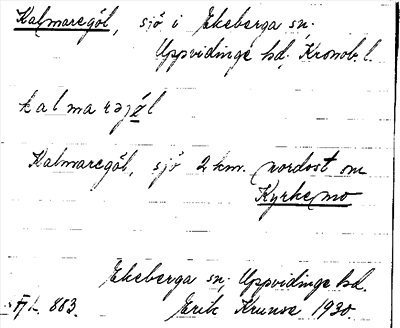 Kalmaregöl, sjö i Ekeberga sn.
Uppvidinge hd, Kronob. l.
kalmarəjö̱l
Kalmaregöl, sjö 2 km. nordost om
Kyrkemo
Ekeberga sn, Uppvidinge hd.
883. Erik Krunse 1930